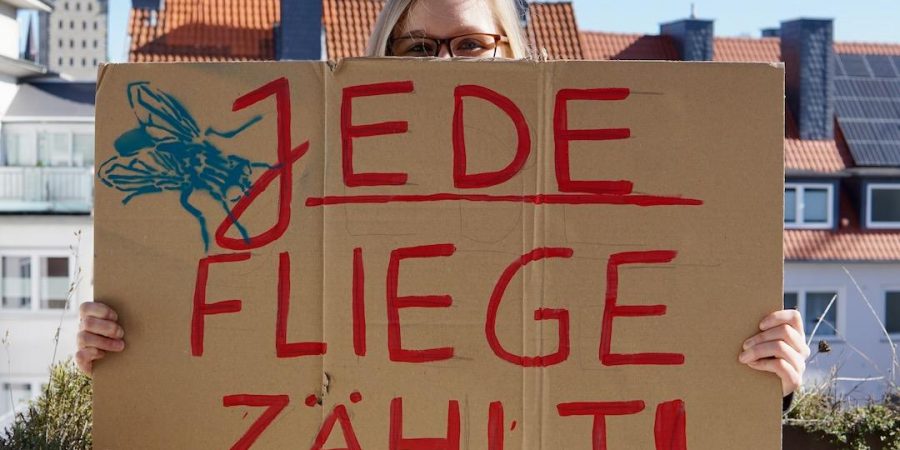 JEDE
FLIEGE
ZÄHLT!